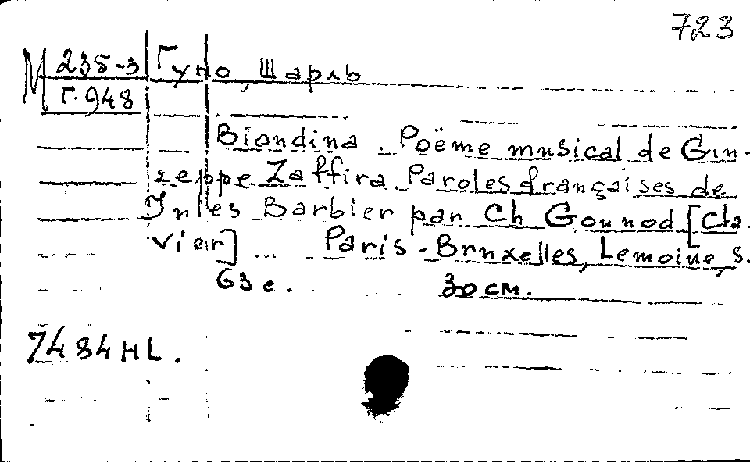 723
М 235-3 Гуно, Шарль
Г.948
Biondina. Poëme musical de Giu-
seppe Zaffira Paroles françaises de
Jules Barbier par Ch Gounod [Cla-
vier] ... Paris-Bruxelles, Lemoine, s.
63 c. 30 см.
7484 HL.